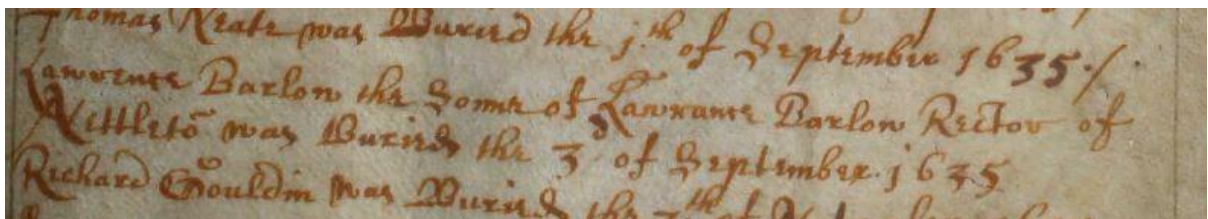 Thomas Neate was Buried the 1th of September 1635./.
Lawrence Barlow the Sonne of Lawrance Barlow Rector of
Nettletō was Buried the 3d of September. 1635
Richard Gouldin was Buried the 7th of